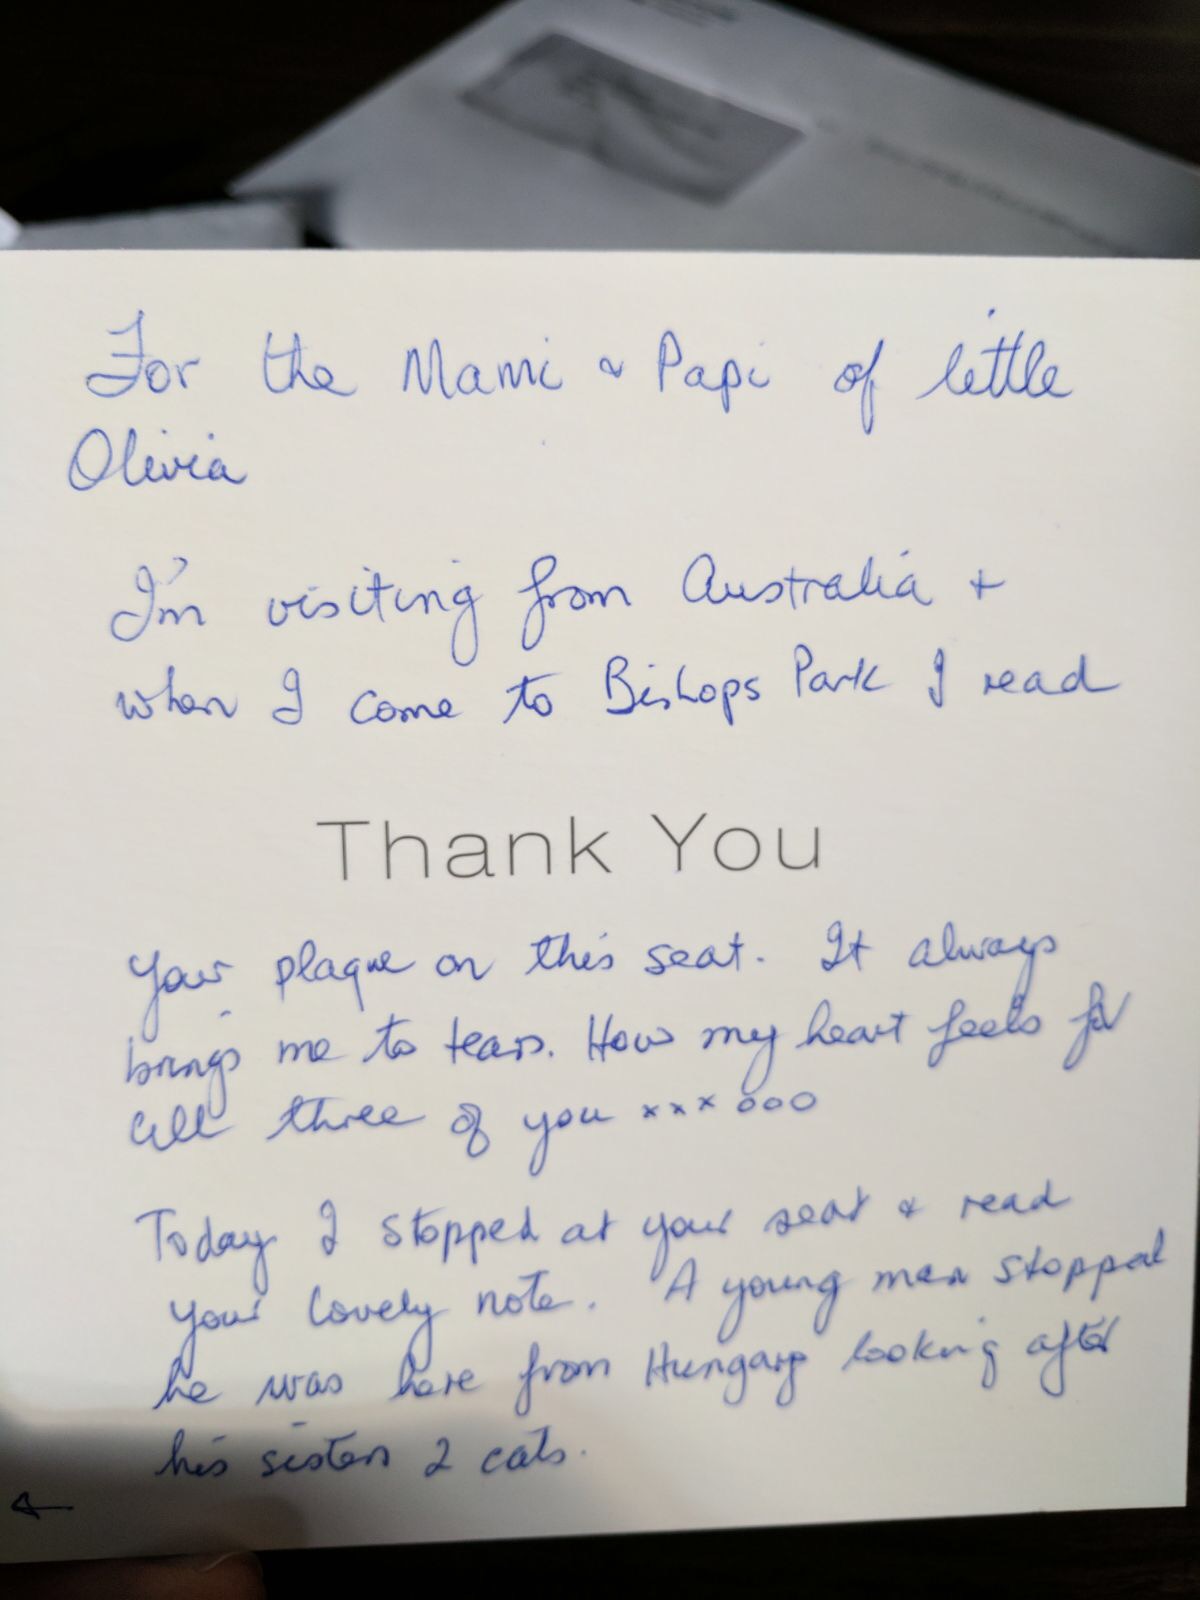 For the Mami & Papi of little
Olivia
I'm visiting from Australia +
when I come to Bishops Park I read
Thank You
Your plaque on this seat. It always
brings me to tears. How my heart feels for
all three of you xxx ooo
Today I stopped at your seat & read
your lovely note. A young man stopped
he was here from Hungary looking after
his sisters 2 cats.
←